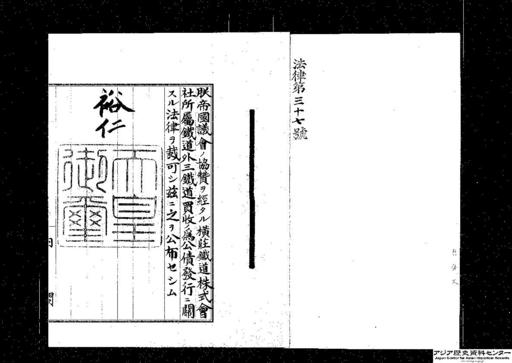 法律第三十七號
朕帝國議會ノ協贊ヲ經タル橫莊鐵道株式會
社所屬鐵道外三鐵道買收ノ爲公債發行ニ關
スル法律ヲ裁可シ茲ニ之ヲ公布セシム
裕仁
天皇
御璽
アジア歴史資料センター
Japan Center for Asian Historical Records